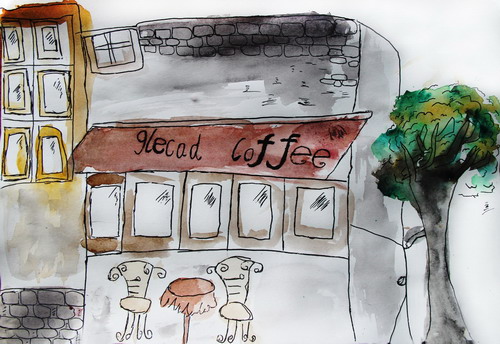 glecad Coffee